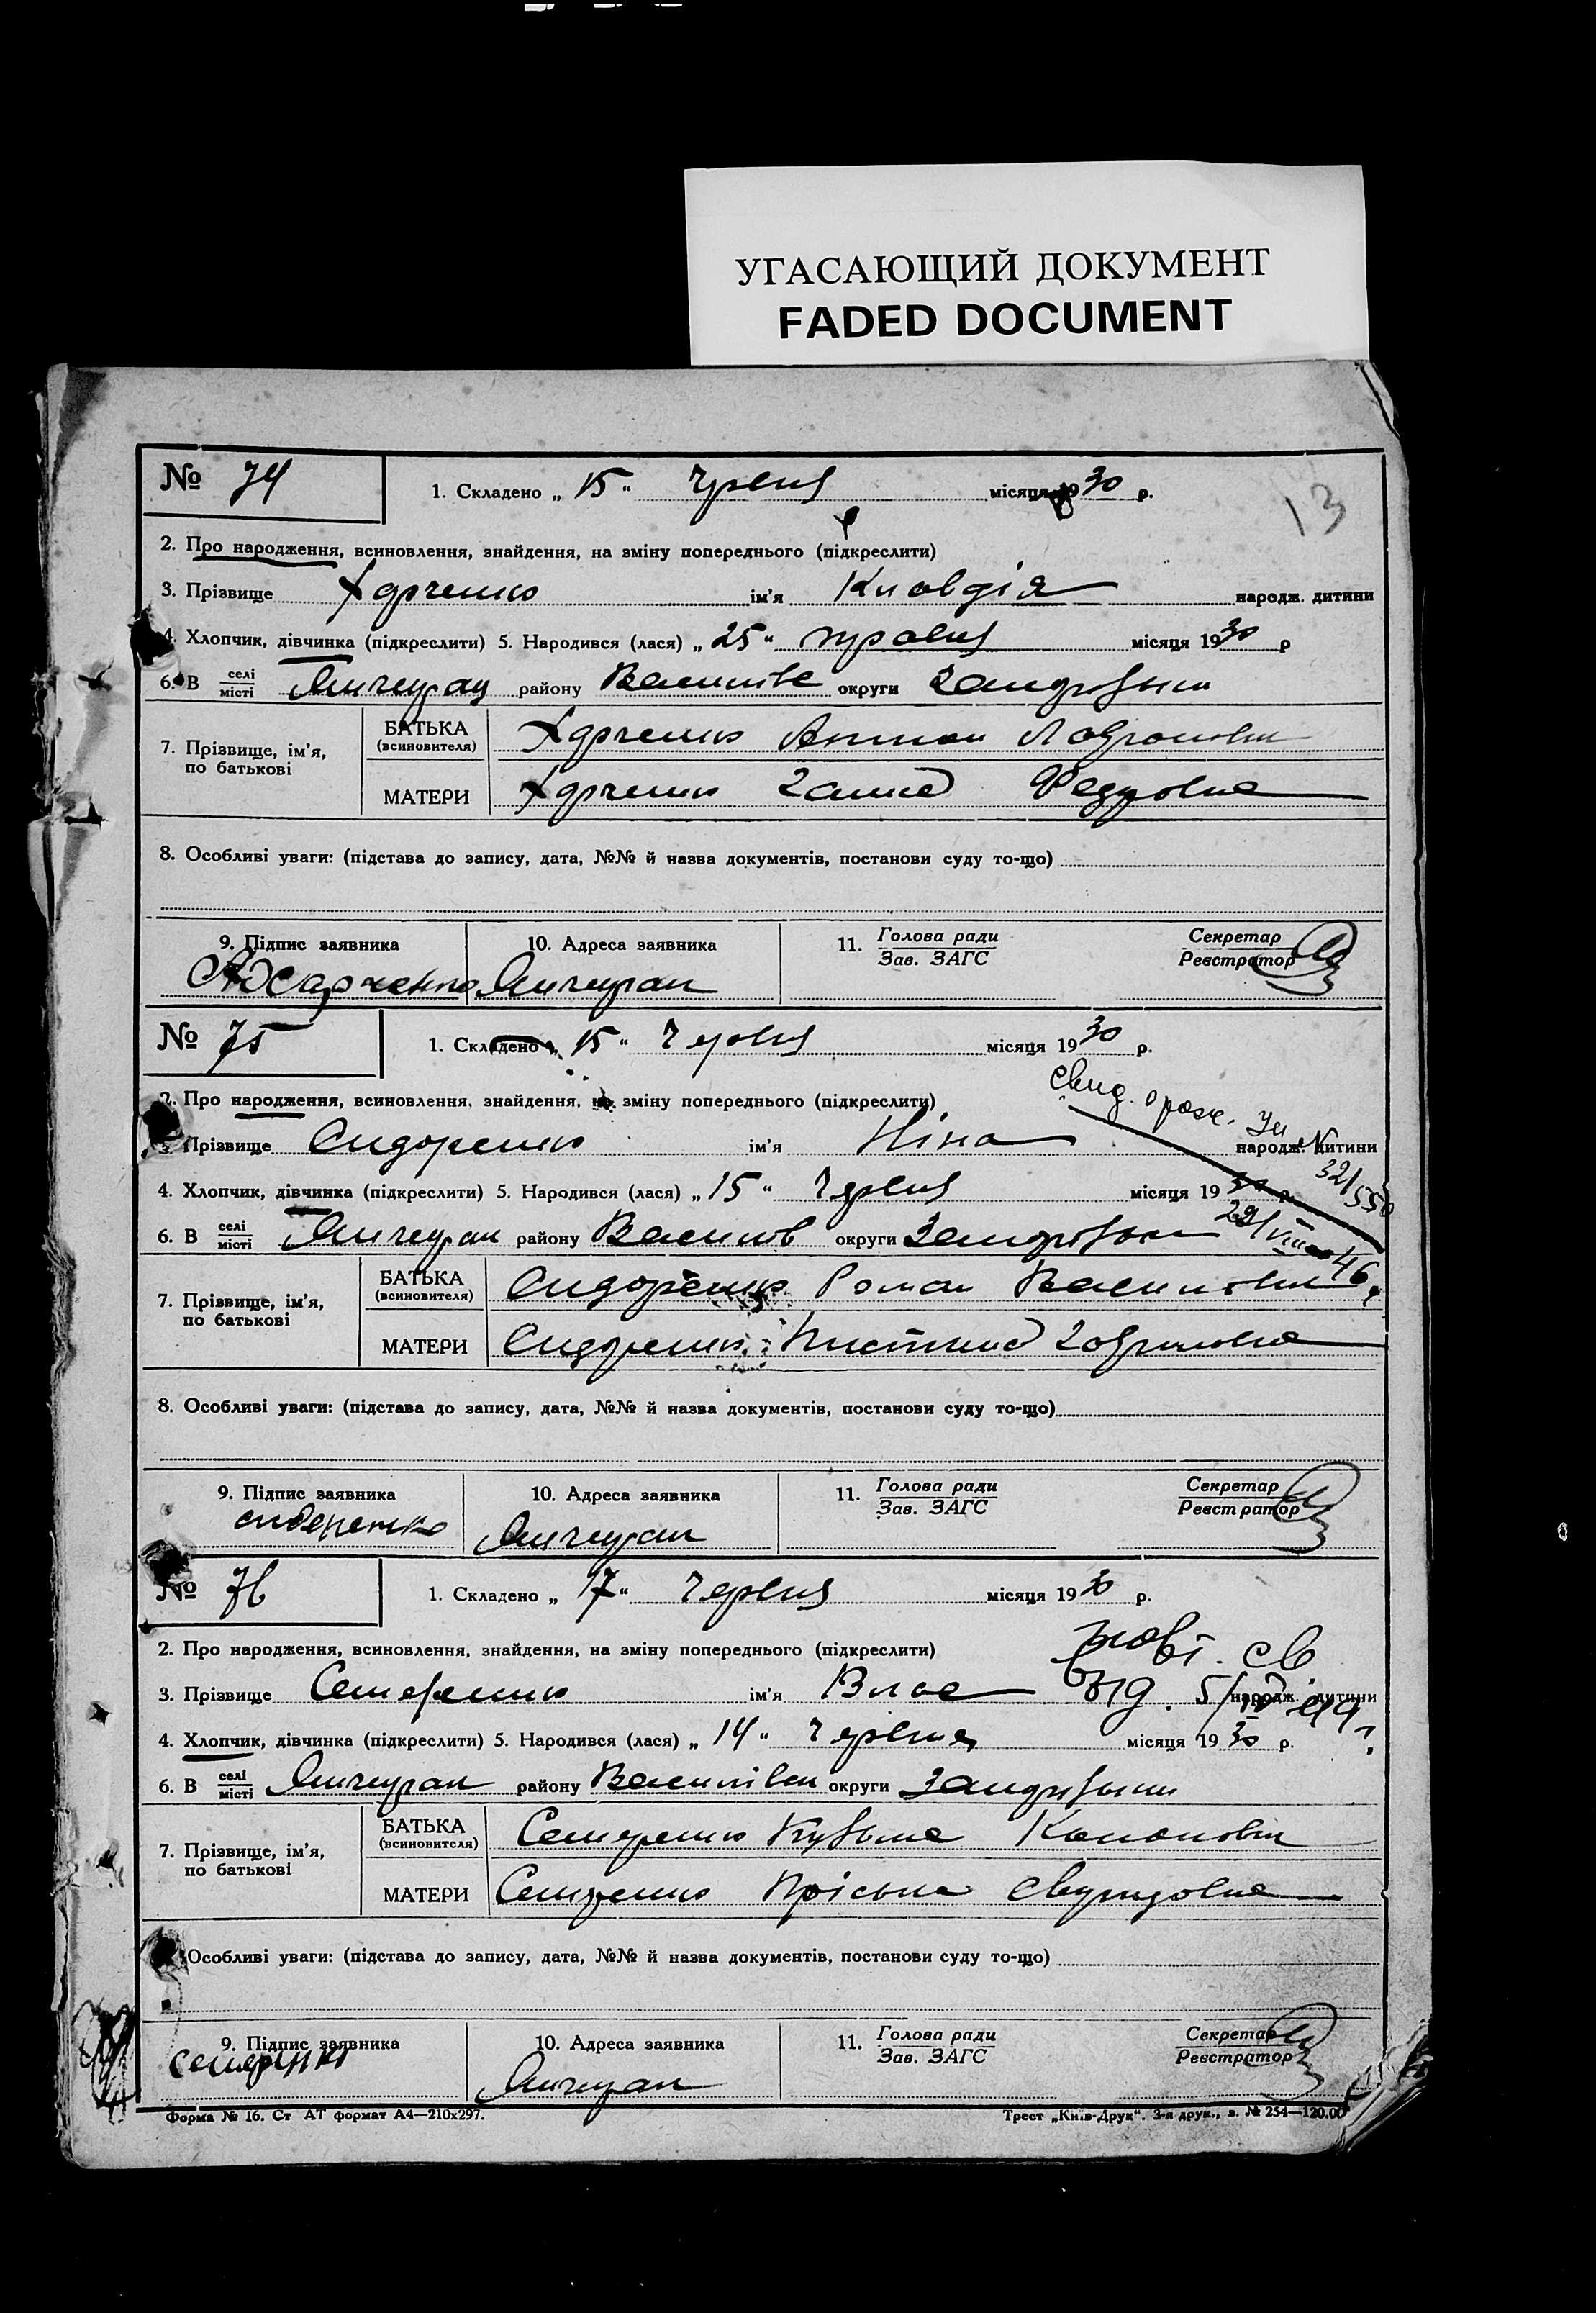 УГАСАЮЩИЙ ДОКУМЕНТ
FADED DOCUMENT
13
№ 74
1. Складено „ 15 “ червня місяця 1930 р.
2. Про народження, всиновлення, знайдення, на зміну попереднього (підкреслити)
3. Прізвище Харченко ім'я Клавдія народж. дитини
4. Хлопчик, дівчинка (підкреслити) 5. Народився (лася) „ 25 “ травня місяця 1930 р
6. В селі місті Янчекрак району Василівс округи Запорізьки
7. Прізвище, ім'я, по батькові
БАТЬКА (всиновителя) Харченко Антон
МАТЕРИ Харченко Ганна Федоровна
8. Особливі уваги: (підстава до запису, дата, №№ й назва документів, постанови суду то-що)
9. Підпис заявника 10. Адреса заявника 11. Голова ради Зав. ЗАГС Секретар Реєстратор
АХарченко Янчекрак
№ 75
1. Складено „ 15 “ червня місяця 1930 р.
2. Про народження, всиновлення, знайдення, на зміну попереднього (підкреслити)
свид. о рож.
32/550
3. Прізвище Сидоренко ім'я Ніна народж. дитини
4. Хлопчик, дівчинка (підкреслити) 5. Народився (лася) „ 15 “ червня місяця 1930 р.
29/VIII 46
6. В селі місті Янчекрак району Василів округи Запорізьки
7. Прізвище, ім'я, по батькові
БАТЬКА (всиновителя) Сидоренко Роман Василович
МАТЕРИ Сидоренко Христина Гавриловна
8. Особливі уваги: (підстава до запису, дата, №№ й назва документів, постанови суду то-що)
9. Підпис заявника 10. Адреса заявника 11. Голова ради Зав. ЗАГС Секретар Реєстратор
сидоренко Янчекрак
№ 76
1. Складено „ 17 “ червня місяця 1930 р.
2. Про народження, всиновлення, знайдення, на зміну попереднього (підкреслити)
св.
3. Прізвище Семеренко ім'я Влас народж. дитини
4. Хлопчик, дівчинка (підкреслити) 5. Народився (лася) „ 14 “ червня місяця 1930 р.
6. В селі місті Янчекрак району Василівськ округи Запорізьки
7. Прізвище, ім'я, по батькові
БАТЬКА (всиновителя) Семеренко Кузьма Кононович
МАТЕРИ Семеренко Пріська
Особливі уваги: (підстава до запису, дата, №№ й назва документів, постанови суду то-що)
9. Підпис заявника 10. Адреса заявника 11. Голова ради Зав. ЗАГС Секретар Реєстратор
семеренко Янчекрак
Форма № 16. Ст АТ формат А4—210x297. Трест „Київ-Друк“. 3-я друк., з. № 254—120.00